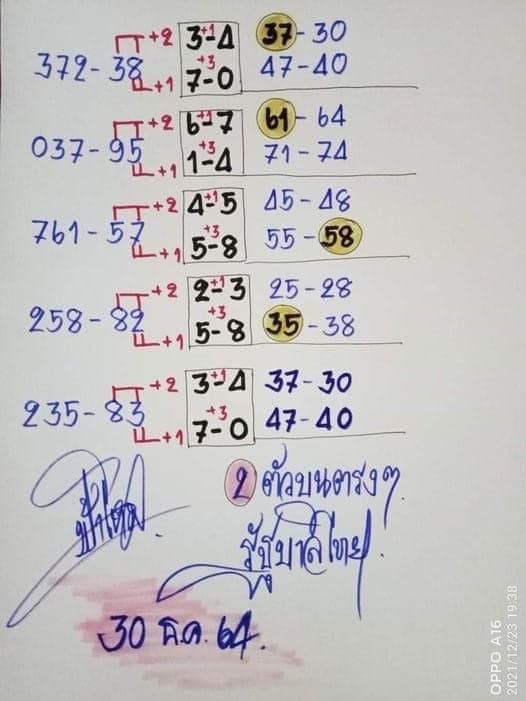 +2 3-4 +1 37-30
372-38 +3
+1 7-0 47-40
+2 6-7 +1 61-64
037-95 +3
+1 1-4 71-74
+2 4-5 +1 45-48
761-57 +3
+1 5-8 55-58
+2 2-3 +1 25-28
258-82 +3
+1 5-8 35-38
+2 3-4 +1 37-30
235-83 +3
+1 7-0 47-40
2 ตัวบนตรงๆ
รัฐบาลไทย
30 ธ.ค. 64.
OPPO A16
2021/12/23 19:38